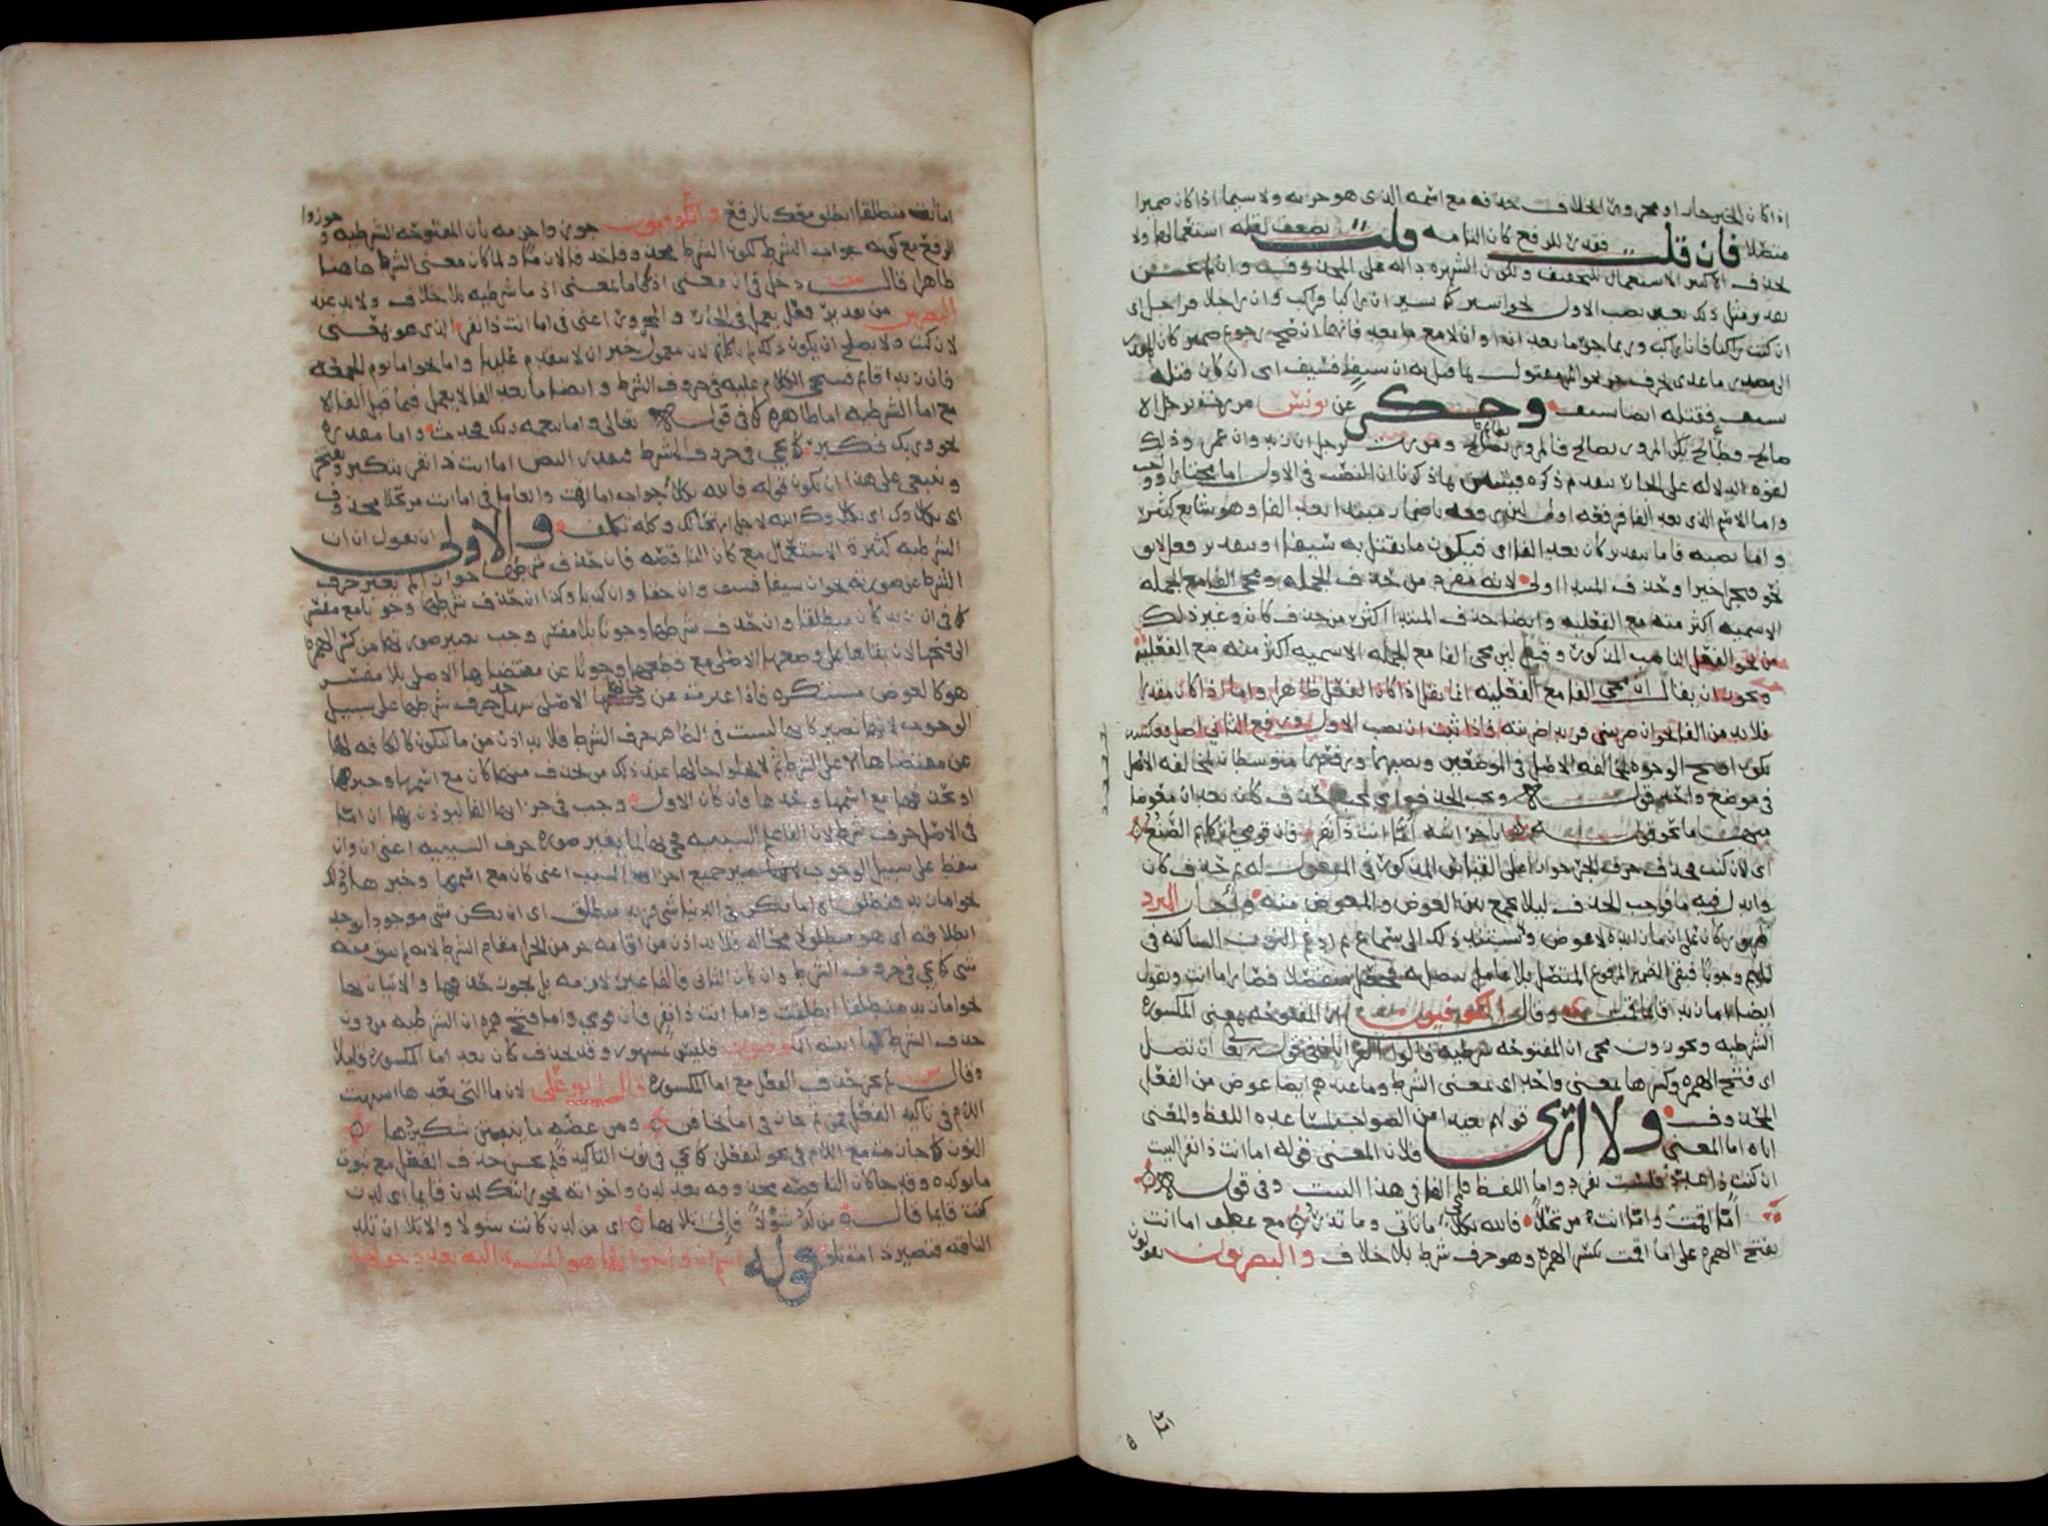 اذا كان الخبر جارا او مجرورا الخلاف حذفه مع اسمه الذى هو جزءه ولا سيما اذا كان ضميرا
متصلا فان قلت فقدر للرفع كان التامه قلت يضعف لقله استعمالها ولا
يحذف الا كثير الاستعمال للتخفيف ولكون الشهره داله على المحذوف وان لم يحسن
تقدير مثل ذلك تعين نصب الاول نحو اسير كما تسير ان راكبا فراكب وان راجلا فراجل اى
ان كنت راكبا فانا راكب وربما جر ما بعد ان او ان لا مع ما بعد فائهما ان صح رجوع ضمير كان المقدر
الى مصدر ما عدى بحرف جر نحو المرء مقتول بما قتل به ان سيف فسيف اى ان كان قتله
بسيف فقتله ايضا بسيف وحكى عن يونس مررت برجل الا
صالح فطالح اى ان لا امرر بصالح فالمرور بطالح ومررت برجل ان زيد وان عمرو وذلك
لقوه الدلاله على الجار بتقدم ذكره فتبين بما ذكرنا ان النصب فى الاول اما مختار او واجب
واما الاسم الذى بعد الفا فرفعه اولى لان رفعه باضمار مبتدا بعد الفا وهو شايع كثير
واما نصبه فاما بتقدير كان بعد الفا اى فيكون ما يقتل به سيفا او بتقدير فعل لايق
نحو فيجزا خيرا وحذف المبتدا اولى لانه مفرد من حذف الجمله ومجى الفا مع الجمله
الاسميه اكثر منه مع الفعليه وايضا حذف المبتدا اكثر من حذف كان وغير ذلك
من نحو الفعل الناصب المذكور وقيل لان مجى الفا مع الجمله الاسميه اكثر منه مع الفعليه
ويجوز ان يقال ان مجى الفا مع الفعليه انما يقل اذا كان الفعل ظاهرا واما اذا كان مقدرا
فلا بد من الفا نحو ان ضربتنى فزيدا ضربته فاذا ثبت ان نصب الاول ورفع الثانى اصل وعكسه
يكون اقبح الوجوه لمخالفه الاصل فى الموضعين ونصبهما ورفعهما متوسطان لمخالفه الاصل
فى موضع واحد قوله ويجب الحذف اى يجب حذف كان بعد ان معوضا
عنها ما نحو قوله ابا خراشه اما انت ذا نفر فان قومى لم تاكلهم الضبع
اى لان كنت فحذف حرف الجر جوازا على القياس المذكور فى المفعول له ثم حذف كان
وابدل منه ما فوجب الحذف ليلا يجمع بين العوض والمعوض منه واجاز المبرد
ظهور كان على ان ما زايده لا عوض ولا يستند ذلك الى سماع ثم ادغم النون الساكنه فى
الميم وجوبا فبقى الضمير المرفوع المتصل بلا عامل يتصل به فجعل منفصلا فصار اما انت وتقول
ايضا اما زيد قايما قمت وقال الكوفيون ان المفتوحه بمعنى المكسوره
الشرطيه ويجوزون مجى ان المفتوحه شرطيه قالوا القراتان فى قوله تعالى ان تضل
اى فتح الهمزه وكسرها بمعنى واحد اى بمعنى الشرط وما عندهم ايضا عوض من الفعل
المحذوف ولا ارى قولهم بعيدا من الصواب لمساعده اللفظ والمعنى
اياه اما المعنى فلان المعنى فى قوله اما انت ذا نفر البيت
ان كنت ذا عدد فلست بفرد واما اللفظ فلمجى الفا فى هذا البيت وفى قوله
اما اقمت واما انت مرتحلا فالله يكلا ما تاتى وما تذر مع عطف اما انت
بفتح الهمزه على اما اقمت بكسر الهمزه وهو حرف شرط بلا خلاف والبصريون يقولون
اما انت منطلقا انطلق معك بالرفع والكوفيون جوزوا جزمه بان المفتوحه الشرطيه و
الرفع مع كونه جواب الشرط لكون الشرط محذوفا وجوبا ولما كان معنى الشرط هاهنا
ظاهرا قال س دخل فى ان معنى اذ كما اما بمعنى اذ ما شرطيه بلا خلاف ولا بد عند
البصريين من تقدير فعل يعمل فى الجار والمجرور اعنى فى اما انت ذا نفر الذى هو بمعنى
لان كنت ولا يصلح ان يكون ذلك لم تاكلهم لان معمول خبر ان لا يتقدم عليها واما نحو اما يوم الجمعه
فان زيدا قايم فسيجى الكلام عليه فى حروف الشرط وايضا ما بعد الفا لا يعمل فيما قبل الفا الا
مع اما الشرطيه اما ظاهره كما فى قوله تعالى واما بنعمه ربك فحدث واما مقدره
نحو وربك فكبر كما يجى فى حروف الشرط فتقدير البيت اما انت ذا نفر تتكبر وتفتخر
وينبغى على هذا ان يكون قوله فالله يكلا جواب اما اقمت والعامل فى اما انت مرتحلا محذوف
اى يكلاوك اى يكلاوك الله لاجل ارتحالك وكله تكلف والاولى ان يقول ان ان
الشرطيه كثيره الاستعمال مع كان الناقصه فان حذف شرطها جوازا لم يغير حرف
الشرط عن صورته نحو ان سيفا فسيف وان حقا وان كذبا وكذا ان حذف شرطها وجوبا مع مفسر
كما فى ان زيد كان منطلقا وان حذف شرطها وجوبا بلا مفسر وجب تغيير صورتها من كسر الهمزه
الى فتحها لان بقاءها على وضعها الاصلى مع قطعها وجوبا عن مقتضاها الاصلى بلا مفسر
هو كالعوض مستنكره فاذا غيرت عن حالها الاصلى سهل حذف شرطها على سبيل
الوجوب لانها تصير كانها ليست فى الظاهر حرف الشرط فلا بد اذن من ما لتكون كالكافه لها
عن مقتضاها اعنى الشرط ثم لا يخلوا حالها عند ذلك من ان تحذف منها كان مع اسمها وخبرها
او تحذفها مع اسمها وحدها فان كان الاول وجب فى جزايها الفا ليوذن بها ان اما
فى الاصل حرف شرط لان الفا علم السببيه فجى بها لما تغير صوره حرف السببيه اعنى ان وان
سقط على سبيل الوجوب جميع اجزا السبب اعنى كان مع اسمها وخبرها وذلك
نحو اما زيد فمنطلق اى اما يكن فى الدنيا شى فزيد منطلق اى ان يكن شى موجودا يوجد
انطلاقه اى هو منطلق لا محاله فلا بد اذن من اقامه جزء من الجزا مقام الشرط لانه لم يبق منه
شى كما يجى فى حروف الشرط وان كان الثانى فالفا غير لازمه بل يجوز حذفها والاتيان بها
نحو اما زيد منطلقا انطلقت واما انت ذا نفر فان قومى واما فتح همزه ان الشرطيه من دون
حذف الشرط كما اثبته الكوفيون فليس بمشهور وقد تحذف كان بعد اما المكسوره قليلا
وقال س لم يجز حذف الفعل مع اما المكسوره قال ابو على لان ما التى بعدها اشبهت
اللام فى تاكيد الفعل فمن ثم جاز فى اما تخافن ومن عضه ما ينبتن شكيرها
النون كما جازت مع اللام فى نحو لتفعلن كما يجى فى نون التاكيد فلم يحسن حذف الفعل مع ثبوت
ما يوكده وقد جا كان الناقصه محذوفه بعد لدن واخواته نحو رايتك لدن قايما اى لدن
كنت قايما قال من لد شولا فالى اتلايها اى من لدن كانت شولا والاتلا ان تلد
الناقه فتصير ذا متلو قوله اسم ان واخواتها هو المسند اليه بعد دخولها